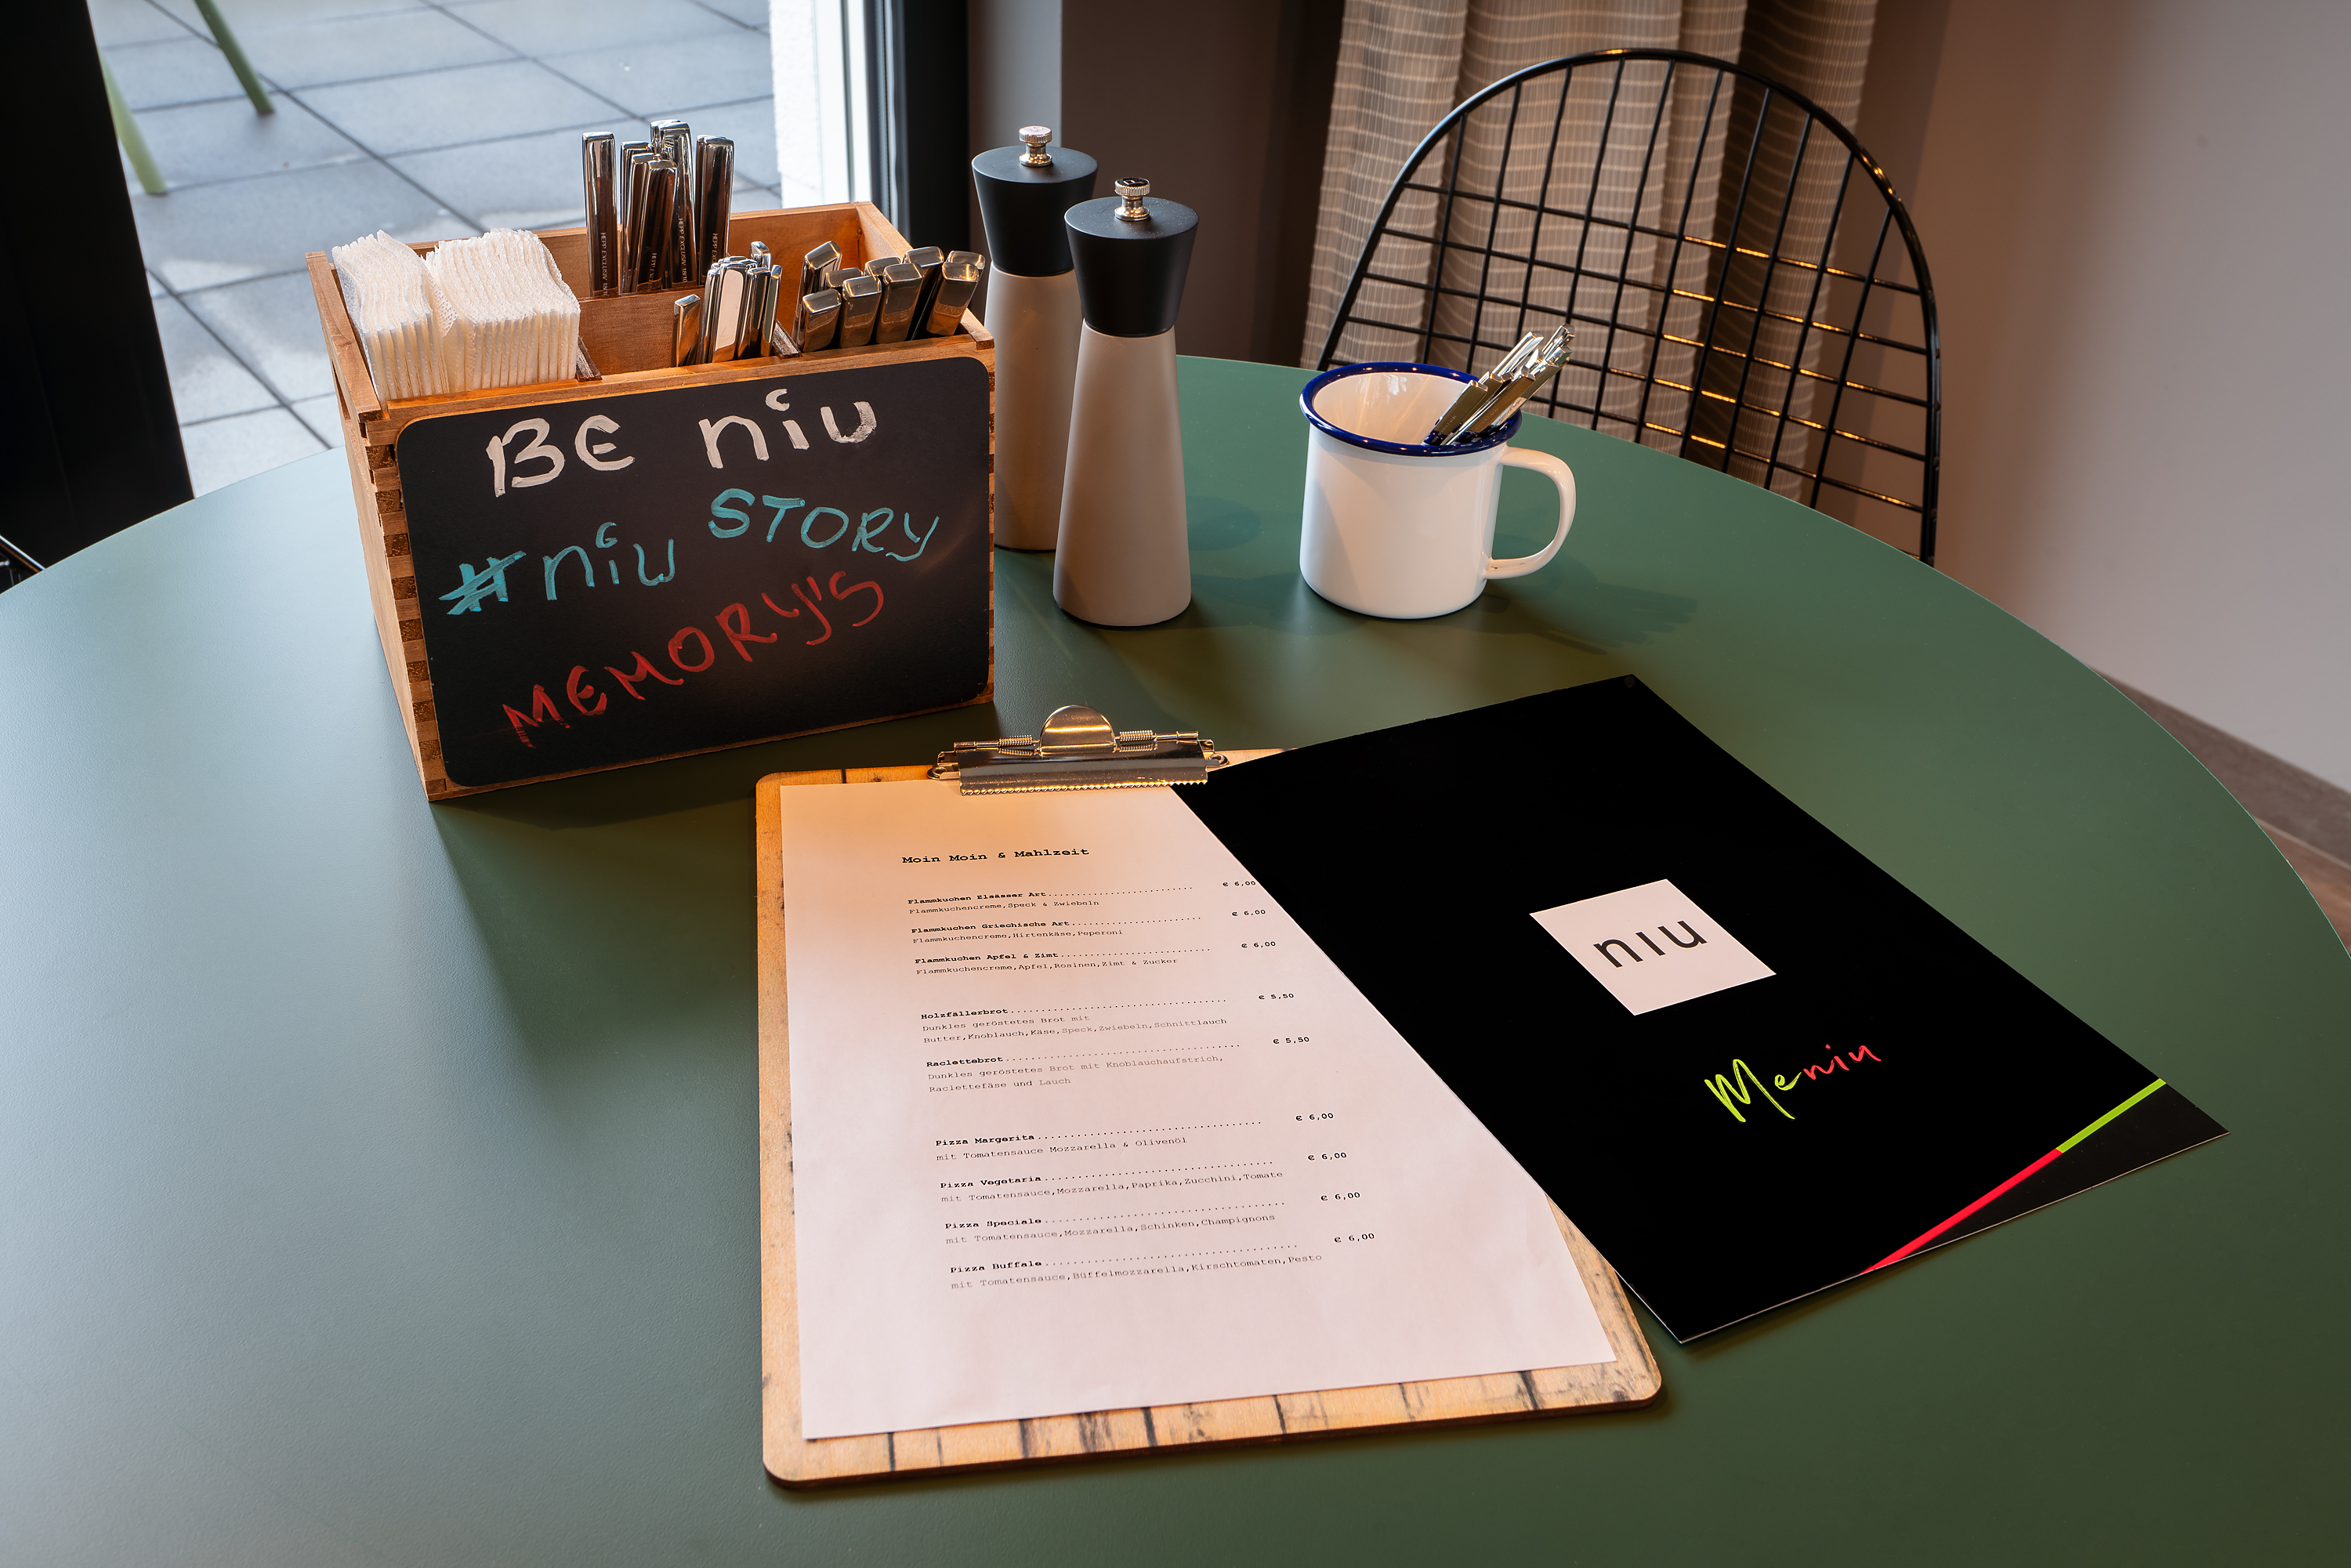 BE niu
#niu STORY
MEMORY'S
Moin Moin & Mahlzeit
Flammkuchen Elsässer Art.......................... € 6,00
Flammkuchencreme,Speck & Zwiebeln
Flammkuchen Griechische Art....................... € 6,00
Flammkuchencreme,Hirtenkäse,Peperoni
Flammkuchen Apfel & Zimt.......................... € 6,00
Flammkuchencreme,Apfel,Rosinen,Zimt & Zucker
Holzfällerbrot..................................... € 5,50
Dunkles geröstetes Brot mit
Butter,Knoblauch,Käse,Speck,Zwiebeln,Schnittlauch
Raclettebrot....................................... € 5,50
Dunkles geröstetes Brot mit Knoblauchaufstrich,
Raclettefäse und Lauch
Pizza Margerita.................................... € 6,00
mit Tomatensauce Mozzarella & Olivenöl
Pizza Vegetaria.................................... € 6,00
mit Tomatensauce,Mozzarella,Paprika,Zucchini,Tomate
Pizza Speciale..................................... € 6,00
mit Tomatensauce,Mozzarella,Schinken,Champignons
Pizza Buffale...................................... € 6,00
mit Tomatensauce,Büffelmozzarella,Kirschtomaten,Pesto
niu
Meniu